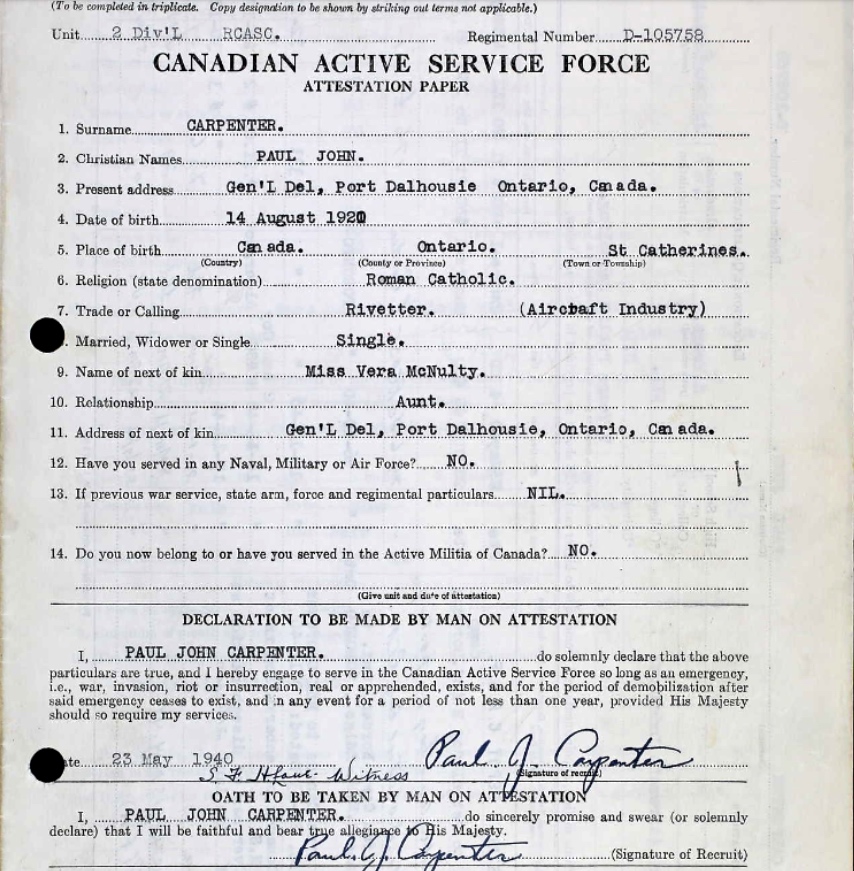 (To be completed in triplicate. Copy designation to be shown by striking out terms not applicable.)
Unit 2 Div'L RCASC. Regimental Number D-105758
CANADIAN ACTIVE SERVICE FORCE
ATTESTATION PAPER
1. Surname CARPENTER.
2. Christian Names PAUL JOHN.
3. Present address Gen'L Del, Port Dalhousie Ontario, Canada.
4. Date of birth 14 August 1920
5. Place of birth Canada. Ontario. St Catherines.
(Country) (County or Province) (Town or Township)
6. Religion (state denomination) Roman Catholic.
7. Trade or Calling Rivetter. (Aircraft Industry)
. Married, Widower or Single Single.
9. Name of next of kin Miss Vera McNulty.
10. Relationship Aunt.
11. Address of next of kin Gen'L Del, Port Dalhousie, Ontario, Canada.
12. Have you served in any Naval, Military or Air Force? NO.
13. If previous war service, state arm, force and regimental particulars NIL.
14. Do you now belong to or have you served in the Active Militia of Canada? NO.
(Give unit and date of attestation)
DECLARATION TO BE MADE BY MAN ON ATTESTATION
I, PAUL JOHN CARPENTER. do solemnly declare that the above
particulars are true, and I hereby engage to serve in the Canadian Active Service Force so long as an emergency,
i.e., war, invasion, riot or insurrection, real or apprehended, exists, and for the period of demobilization after
said emergency ceases to exist, and in any event for a period of not less than one year, provided His Majesty
should so require my services.
ate 23 May 1940 Paul J. Carpenter
Witness (Signature of recruit)
OATH TO BE TAKEN BY MAN ON ATTESTATION
I, PAUL JOHN CARPENTER. do sincerely promise and swear (or solemnly
declare) that I will be faithful and bear true allegiance to His Majesty.
Paul. J. Carpenter (Signature of Recruit)